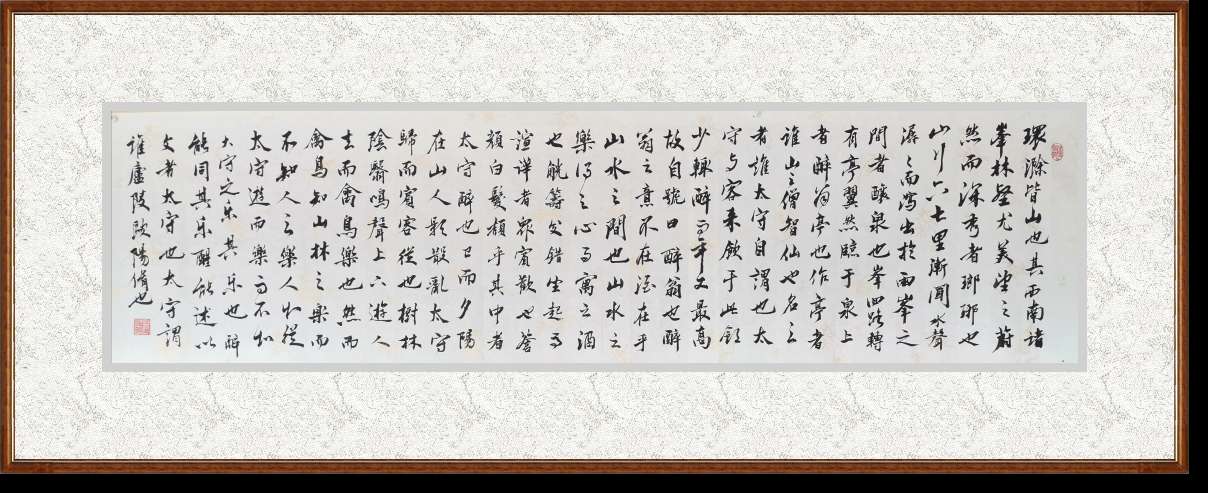 環滁皆山也其西南諸
峯林壑尤美望之蔚
然而深秀者瑯琊也
山行六七里漸聞水聲
潺〻而瀉出於兩峯之
間者釀泉也峯回路轉
有亭翼然臨于泉上
者醉翁亭也作亭者
誰山之僧智仙也名之
者誰太守自謂也太
守与客来飲于此飲
少輒醉而年又最高
故自號曰醉翁也醉
翁之意不在酒在乎
山水之間也山水之
樂得之心而寓之酒
也觥籌交錯坐起而
諠譁者眾賓歡也蒼
顏白髮頹乎其中者
太守醉也已而夕陽
在山人影散亂太守
歸而賓客從也樹林
陰翳鳴聲上下遊人
去而禽鳥樂也然而
禽鳥知山林之樂而
不知人之樂人知從
太守遊而樂而不知
太守之乐其乐也醉
能同其乐醒能述以
文者太守也太守謂
誰廬陵歐陽脩也